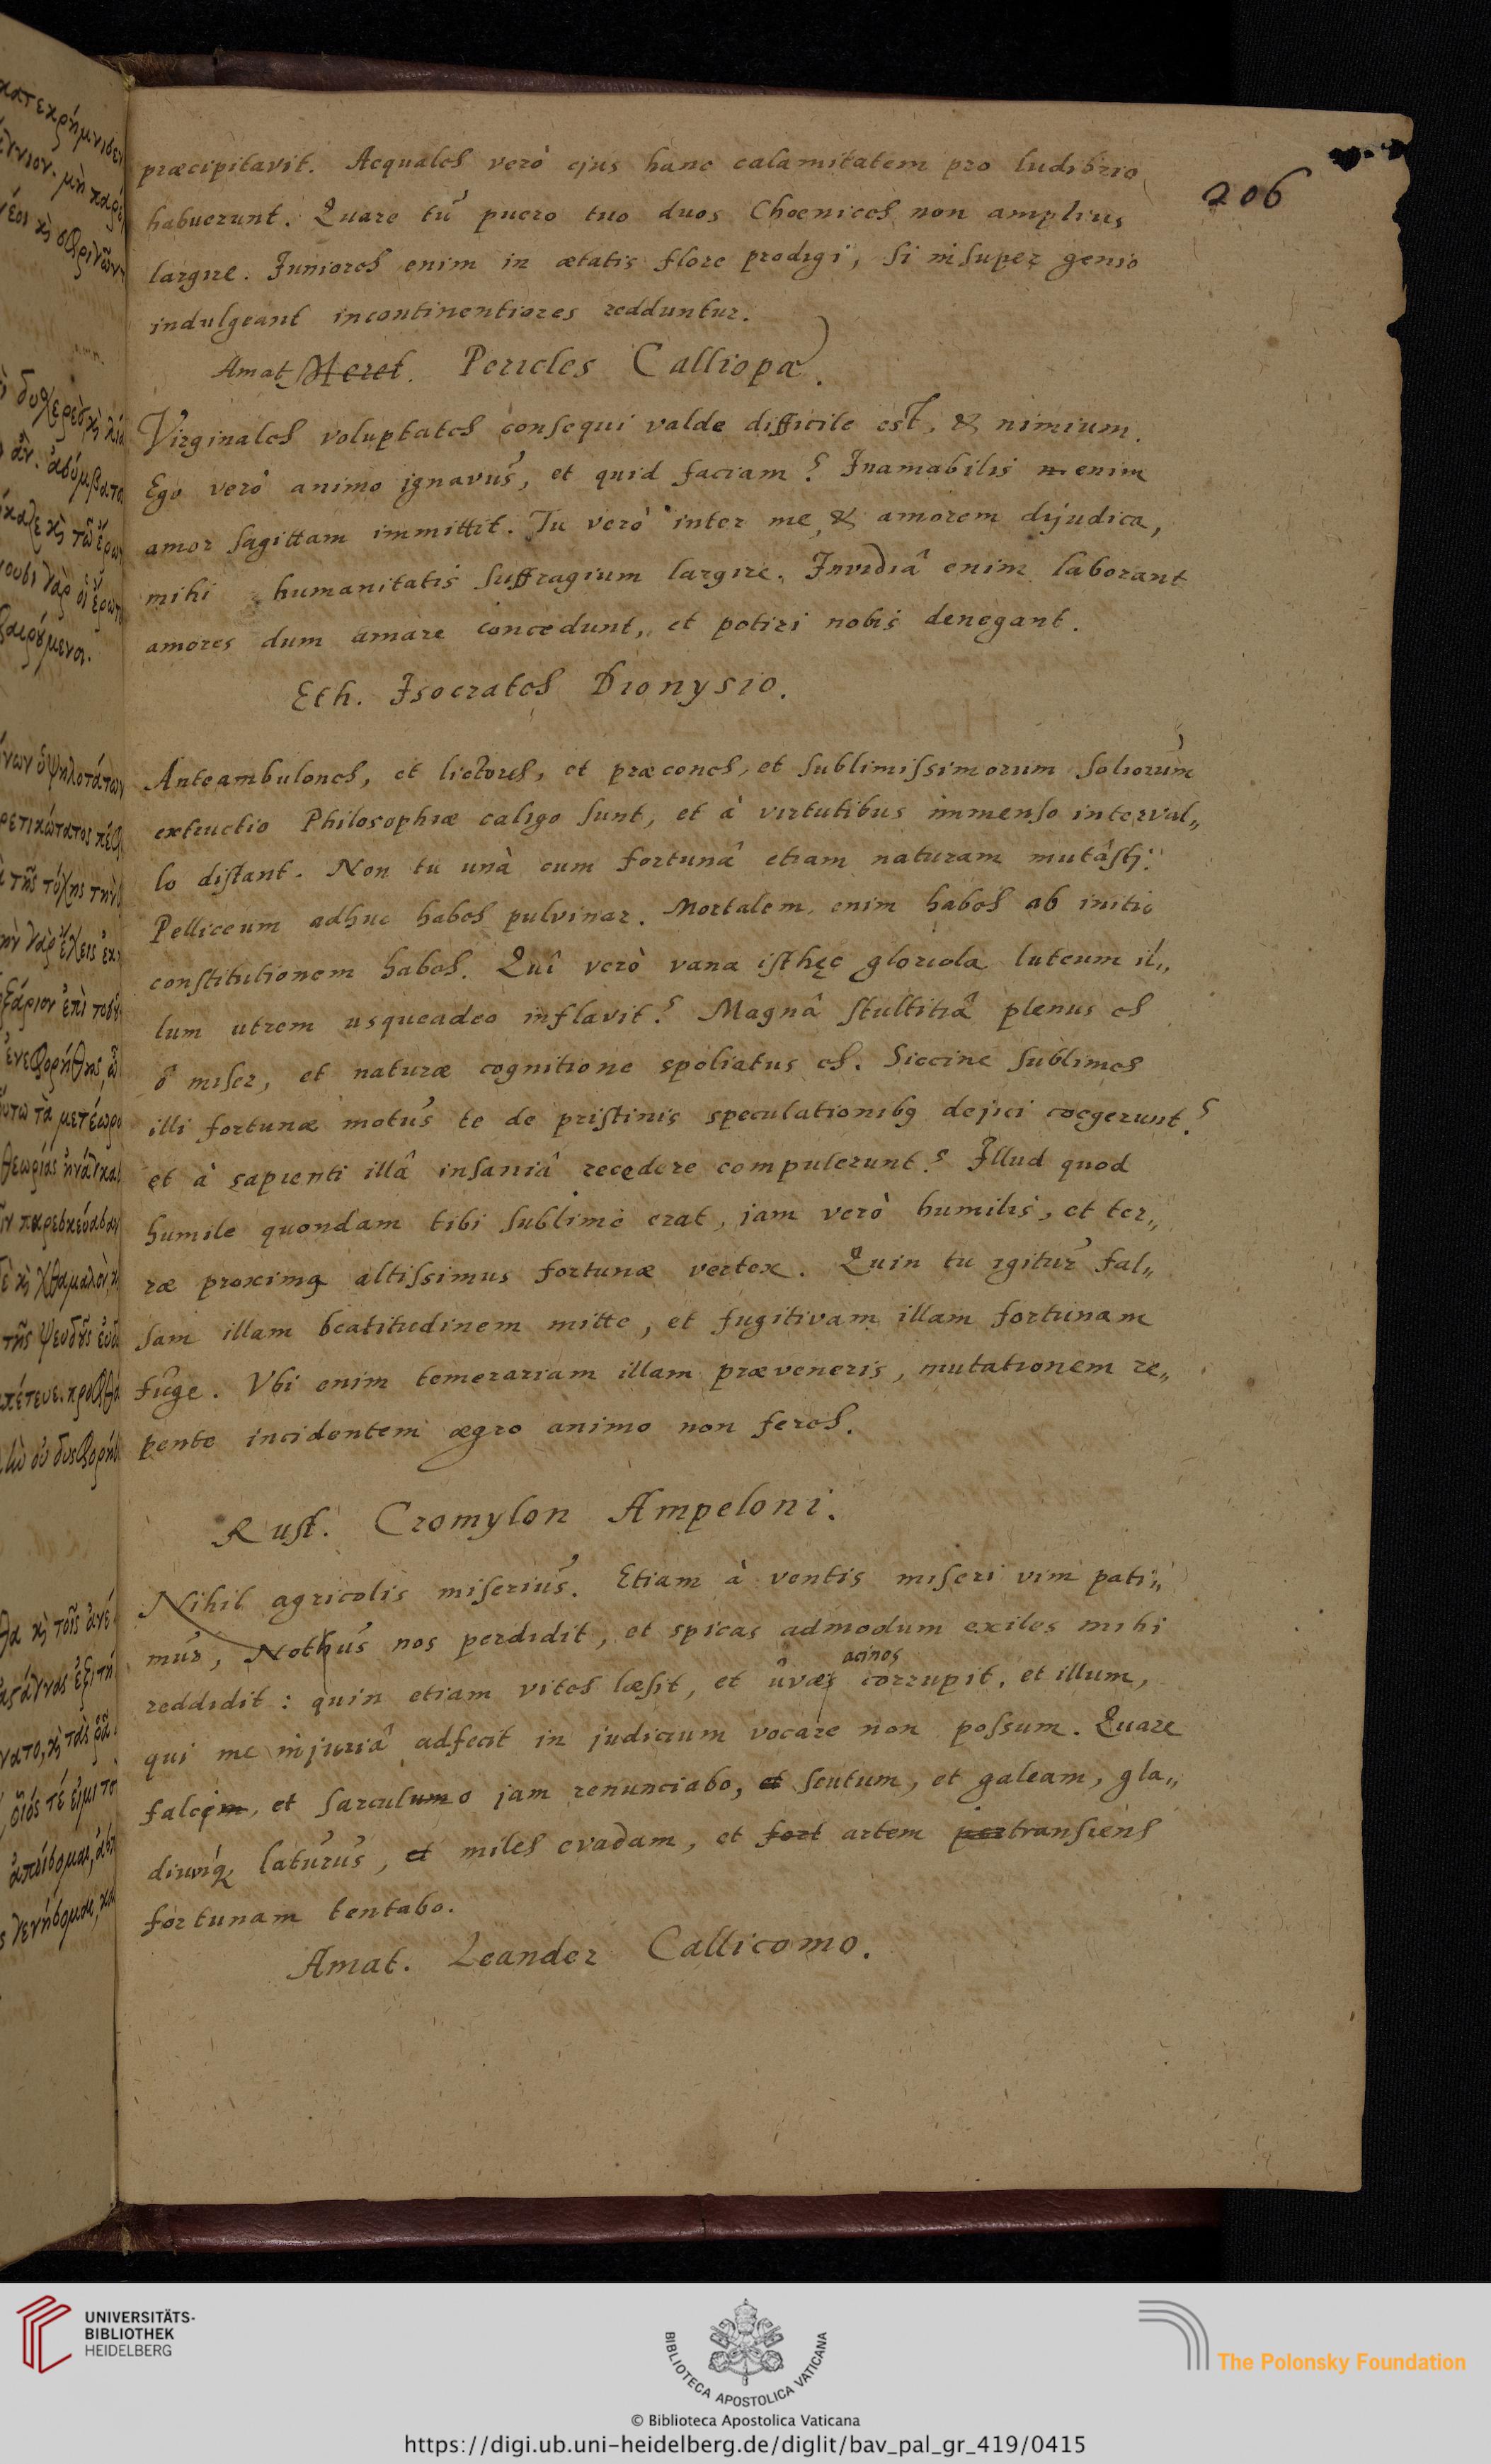 præcipitavit. Aequales verò ejus hanc calamitatem pro ludibrio
206
habuerunt. Quare tu puero tuo duos Choenices non amplius
largire. Juniores enim in ætatis flore prodigi, si insuper genio
indulgeant incontinentiores redduntur.
Amat. Meret. Pericles Calliopæ.
Virginales voluptates consequi valde difficile est, & nimium.
Ego verò animo ignavus, et quid faciam? Inamabilis n enim
amor sagittam immittit. Tu verò inter me & amorem dijudica,
mihi humanitatis suffragium largire. Invidiâ enim laborant
amores dum amare concedunt,, et potiri nobis denegant.
Eth. Isocrates Dionysio.
Anteambulones, et lictores, et præcones, et sublimissimorum soliorum
extructio Philosophiæ caligo sunt, et à virtutibus immenso interval„
lo distant. Non tu unà cum fortunâ etiam naturam mutâsti.
Pelliceum adhuc habes pulvinar. Mortalem enim habes ab initio
constitutionem habes. Quî verò vana isthęc gloriola luteum il„
lum utrem usqueadeo inflavit? Magnâ stultitiâ plenus es
ô miser, et naturæ cognitione spoliatus es. Siccine sublimes
illi fortunæ motus te de pristinis speculationibq dejici coegerunt?
et à sapienti illâ insaniâ recedere compulerunt? Illud quod
humile quondam tibi sublime erat, jam verò humilis, et ter„
ræ proximq altissimus fortunæ vertex. Quin tu igitur fal„
sam illam beatitudinem mitte, et fugitivam illam fortunam
fuge. Vbi enim temerariam illam præveneris, mutationem re„
pente incidentem ægro animo non feres.
Rust. Cromylon Ampeloni.
Nihil agricolis miserius. Etiam à ventis miseri vim pati„
mur, Nothus nos perdidit, et spicas admodum exiles mihi
acinos
reddidit: quin etiam vites læsit, et uvæ corrupit, et illum,
qui me injuriâ adfecit in judicium vocare non possum. Quare
falcem, et sarculum o jam renunciabo, et scutum, et galeam, gla„
diumq laturus, et miles evadam, et fort artem pertransiens
fortunam tentabo.
Amat. Leander Callicomo.
UNIVERSITÄTS-
BIBLIOTHEK
HEIDELBERG
BIBLIOTECA APOSTOLICA VATICANA
The Polonsky Foundation
© Biblioteca Apostolica Vaticana
https://digi.ub.uni-heidelberg.de/diglit/bav_pal_gr_419/0415